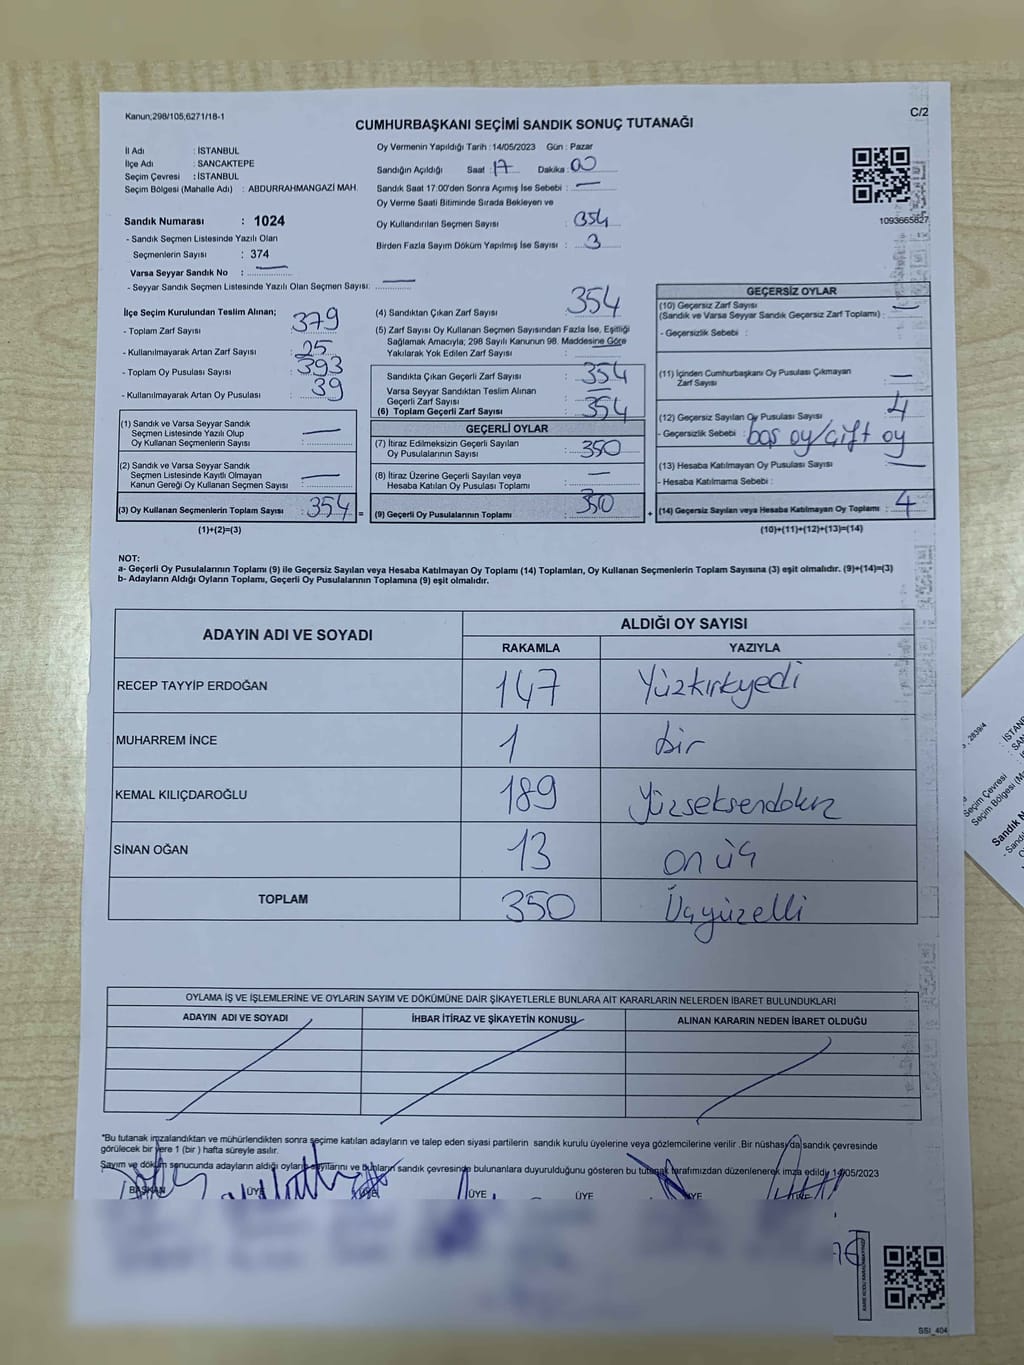 Kanun;298/105,6271/18-1
C/2
CUMHURBAŞKANI SEÇİMİ SANDIK SONUÇ TUTANAĞI
İl Adı : İSTANBUL
İlçe Adı : SANCAKTEPE
Seçim Çevresi : İSTANBUL
Seçim Bölgesi (Mahalle Adı) : ABDURRAHMANGAZİ MAH.
Sandık Numarası : 1024
- Sandık Seçmen Listesinde Yazılı Olan
Seçmenlerin Sayısı : 374
Varsa Seyyar Sandık No : —
- Seyyar Sandık Seçmen Listesinde Yazılı Olan Seçmen Sayısı: —
Oy Vermenin Yapıldığı Tarih : 14/05/2023 Gün : Pazar
Sandığın Açıldığı Saat : 17 Dakika : 00
Sandık Saat 17.00'den Sonra Açımış İse Sebebi : —
Oy Verme Saati Bitiminde Sırada Bekleyen ve
Oy Kullandırılan Seçmen Sayısı : 354
Birden Fazla Sayım Döküm Yapılmış İse Sayısı : 3
1093665827
İlçe Seçim Kurulundan Teslim Alınan;
- Toplam Zarf Sayısı : 379
- Kullanılmayarak Artan Zarf Sayısı : 25
- Toplam Oy Pusulası Sayısı : 393
- Kullanılmayarak Artan Oy Pusulası : 39
(1) Sandık ve Varsa Seyyar Sandık
Seçmen Listesinde Yazılı Olup
Oy Kullanan Seçmenlerin Sayısı : —
(2) Sandık ve Varsa Seyyar Sandık
Seçmen Listesinde Kayıtlı Olmayan
Kanun Gereği Oy Kullanan Seçmen Sayısı : —
(3) Oy Kullanan Seçmenlerin Toplam Sayısı : 354 =
(1)+(2)=(3)
(4) Sandıktan Çıkan Zarf Sayısı : 354
(5) Zarf Sayısı Oy Kullanan Seçmen Sayısından Fazla İse, Eşitliği
Sağlamak Amacıyla; 298 Sayılı Kanunun 98. Maddesine Göre
Yakılarak Yok Edilen Zarf Sayısı : —
Sandıkta Çıkan Geçerli Zarf Sayısı : 354
Varsa Seyyar Sandıktan Teslim Alınan
Geçerli Zarf Sayısı : —
(6) Toplam Geçerli Zarf Sayısı : 354
GEÇERLİ OYLAR
(7) İtiraz Edilmeksizin Geçerli Sayılan
Oy Pusulalarının Sayısı : 350
(8) İtiraz Üzerine Geçerli Sayılan veya
Hesaba Katılan Oy Pusulası Toplamı : —
(9) Geçerli Oy Pusulalarının Toplamı : 350 +
GEÇERSİZ OYLAR
(10) Geçersiz Zarf Sayısı
(Sandık ve Varsa Seyyar Sandık Geçersiz Zarf Toplamı) : —
- Geçersizlik Sebebi :
(11) İçinden Cumhurbaşkanı Oy Pusulası Çıkmayan
Zarf Sayısı : —
(12) Geçersiz Sayılan Oy Pusulası Sayısı : 4
- Geçersizlik Sebebi : boş oy/çift oy
(13) Hesaba Katılmayan Oy Pusulası Sayısı : —
- Hesaba Katılmama Sebebi :
(14) Geçersiz Sayılan veya Hesaba Katılmayan Oy Toplamı : 4
(10)+(11)+(12)+(13)=(14)
NOT:
a- Geçerli Oy Pusulalarının Toplamı (9) ile Geçersiz Sayılan veya Hesaba Katılmayan Oy Toplamı (14) Toplamları, Oy Kullanan Seçmenlerin Toplam Sayısına (3) eşit olmalıdır. (9)+(14)=(3)
b- Adayların Aldığı Oyların Toplamı, Geçerli Oy Pusulalarının Toplamına (9) eşit olmalıdır.
ADAYIN ADI VE SOYADI ALDIĞI OY SAYISI
RAKAMLA YAZIYLA
RECEP TAYYİP ERDOĞAN 147 Yüzkırkyedi
MUHARREM İNCE 1 bir
KEMAL KILIÇDAROĞLU 189 Yüzseksendokuz
SİNAN OĞAN 13 on üç
TOPLAM 350 Üçyüzelli
OYLAMA İŞ VE İŞLEMLERİNE VE OYLARIN SAYIM VE DÖKÜMÜNE DAİR ŞİKAYETLERLE BUNLARA AİT KARARLARIN NELERDEN İBARET BULUNDUKLARI
ADAYIN ADI VE SOYADI İHBAR İTİRAZ VE ŞİKAYETİN KONUSU ALINAN KARARIN NEDEN İBARET OLDUĞU
*Bu tutanak imzalandıktan ve mühürlendikten sonra seçime katılan adayların ve talep eden siyasi partilerin sandık kurulu üyelerine veya gözlemcilerine verilir .Bir nüshası da sandık çevresinde
görülecek bir yere 1 (bir ) hafta süreyle asılır.
Sayım ve döküm sonucunda adayların aldığı oyların sayılarını ve bunların sandık çevresinde bulunanlara duyurulduğunu gösteren bu tutanak tarafımızdan düzenlenerek imza edildi. 14/05/2023
BAŞKAN ÜYE ÜYE ÜYE ÜYE ÜYE ÜYE
SSI_404
, 2839/4
: İSTAN
: SAN
Seçim Çevresi
Seçim Bölgesi (M
Sandık N
- Sand